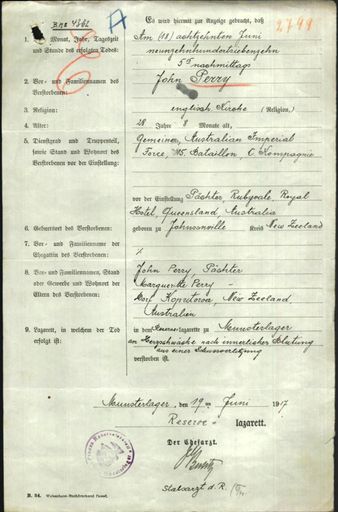 B.N.2 4302
A
2799
Es wird hiermit zur Anzeige gebracht, daß
1. Monat, Jahr, Tageszeit
und Stunde des erfolgten Todes:
Am (18) achtzehnten Juni
neunzehnhundertsiebzehn
5° nachmittag
2. Vor- und Familiennamen des
Verstorbenen:
John Perry
3. Religion:
englisch Kirche (Religion,)
4. Alter:
28 Jahre 8 Monate alt,
5. Dienstgrad und Truppenteil,
sowie Stand und Wohnort des
Verstorbenen vor der Einstellung:
Gemeiner, Australian Imperial
Force, 15. Bataillon C Kompagnie
vor der Einstellung Pächter Rubyvale Royal
Hotel, Queensland, Australia
6. Geburtsort des Verstorbenen:
geboren zu Johnsonville Kreis New Zeeland
7. Vor- und Familienname der
Ehegattin des Verstorbenen:
%
8. Vor- und Familiennamen, Stand
oder Gewerbe und Wohnort der
Eltern des Verstorbenen:
John Perry, Pächter
Marguerite Perry –
Dorf Kopritoroa, New Zeeland
Australien
9. Lazarett, in welchem der Tod
erfolgt ist:
in dem Reserve-Lazarette zu Munsterlager
an Herzschwäche nach innerlicher Blutung
aus einer Schussverletzung
verstorben ist.
Munsterlager, den 19ten Juni 1917
Reserve-lazarett.
Der Chefarzt.
Stabsarzt d. R.
B. 24.